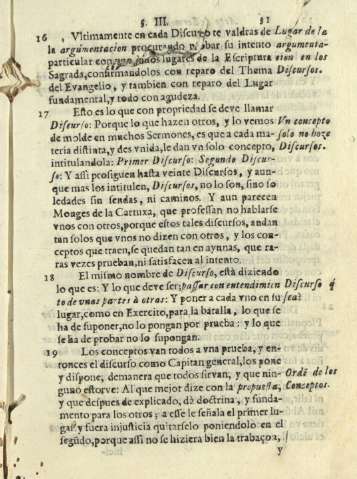 §. III. 51
16 , Vltimamente en cada Discurso te valdras de Lugar de la
la argumentacion procurando probar su intento argumenta-
particular con lugares de la Escriptura cion en los
Sagrada, confirmandolos con reparo del Thema Discursos.
del Evangelio, y tambien con reparo del Lugar
fundamental, y todo con agudeza.
17 Esto es lo que con propriedad se deve llamar
Discurso: Porque lo que hazen otros, y lo vemos Vn concepto
de molde en muchos Sermones, es que a cada ma- solo no haze
teria distinta, y des vnida, le dan vn solo concepto, Discursos.
intitulandola: Primer Discurso: Segundo Discur-
so: Y assi prosiguen hasta veinte Discursos, y aun-
que mas los intitulen, Discursos, no lo son, sino so
ledades sin sendas, ni caminos. Y aun parecen
Monges de la Cartuxa, que professan no hablarse
vnos con otros, porque estos tales discursos, andan
tan solos que vnos no dizen con otros, y los con-
ceptos que traen, se quedan tan en aynnas, que ra-
ras vezes prueban, ni satisfacen al intento.
18 El mismo nombre de Discurso, está diziendo
lo que es: Y lo que deve ser; passar con entendimien Discurso q̃
to de vnas partes à otras: Y poner a cada vno en su sea?
lugar, como en Exercito, para la batalla, lo que se
ha de suponer, no lo pongan por prueba: y lo que
se ha de probar no lo supongan.
19 Los conceptos van todos a vna prueba, y en-
tonces el discurso como Capitan general, los pone
y dispone, demanera que todos sirvan, y que nin- Ordẽ de los
guno estorve: Al que mejor dize con la propuesta, Conceptos.
y que despues de explicado, dà doctrina, y funda-
mento para los otros; a esse le señala el primer lu-
gar, y fuera injusticia quitarselo poniendolo en el
segũdo, porque assi no se hiziera bien la trabaçon,
y